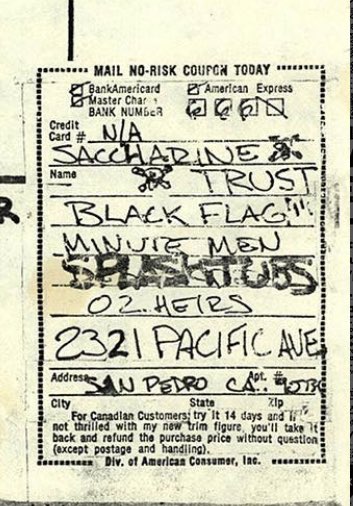 MAIL NO-RISK COUPON TODAY
BankAmericard
American Express
Master Char
BANK NUMBER
Credit
Card # N/A
SACCHARINE
Name
TRUST
BLACK FLAG
MINUTE MEN
OZ. HEIRS
2321 PACIFIC AVE
Address
Apt. #
SAN PEDRO CA.
City State Zip
For Canadian Customers; try it 14 days and if
not thrilled with my new trim figure, you'll take it
back and refund the purchase price without question
(except postage and handling).
Div. of American Consumer, Inc.